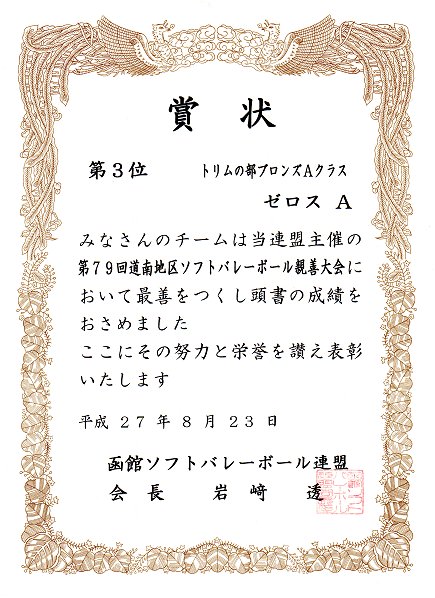 賞状
第3位 トリムの部ブロンズAクラス
ゼロス A
みなさんのチームは当連盟主催の
第79回道南地区ソフトバレーボール親善大会に
おいて最善をつくし頭書の成績を
おさめました
ここにその努力と栄誉を讃え表彰
いたします
平成 27 年 8 月 23 日
函館ソフトバレーボール連盟
会長 岩﨑 透